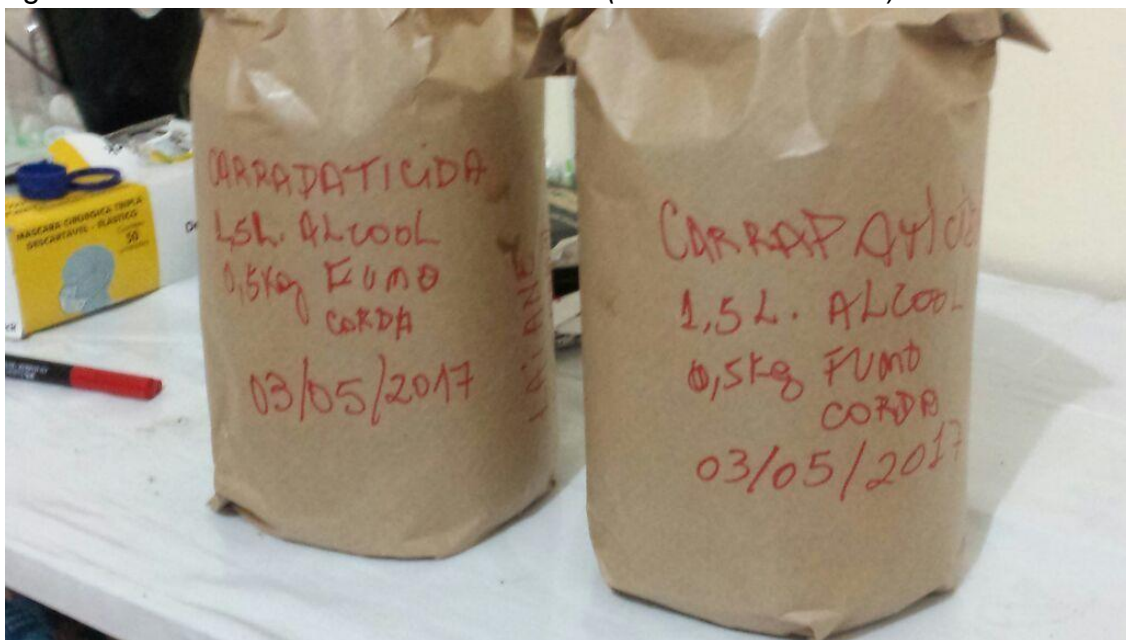 MASCARA CIRURGICA TRIPLA
DESCARTAVEL - ELASTICO
50
CARRADATICIDA
1,5L. ALCOOL
0,5Kg FUMO
CORDA
03/05/2017
CARRAPATICI
1,5L. ALCOOL
0,5Kg FUMO
CORDA
03/05/2017